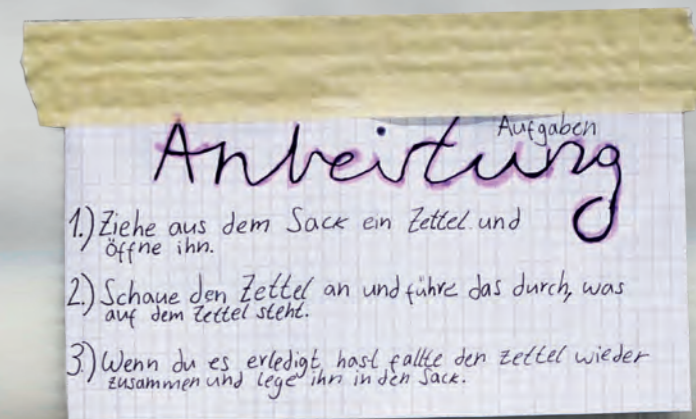 Aufgaben
Anleitung
1.) Ziehe aus dem Sack ein Zettel und
Öffne ihn.
2.) Schaue den Zettel an und führe das durch, was
auf dem Zettel steht.
3.) Wenn du es erledigt hast fallte den Zettel wieder
zusammen und lege ihn in den Sack.